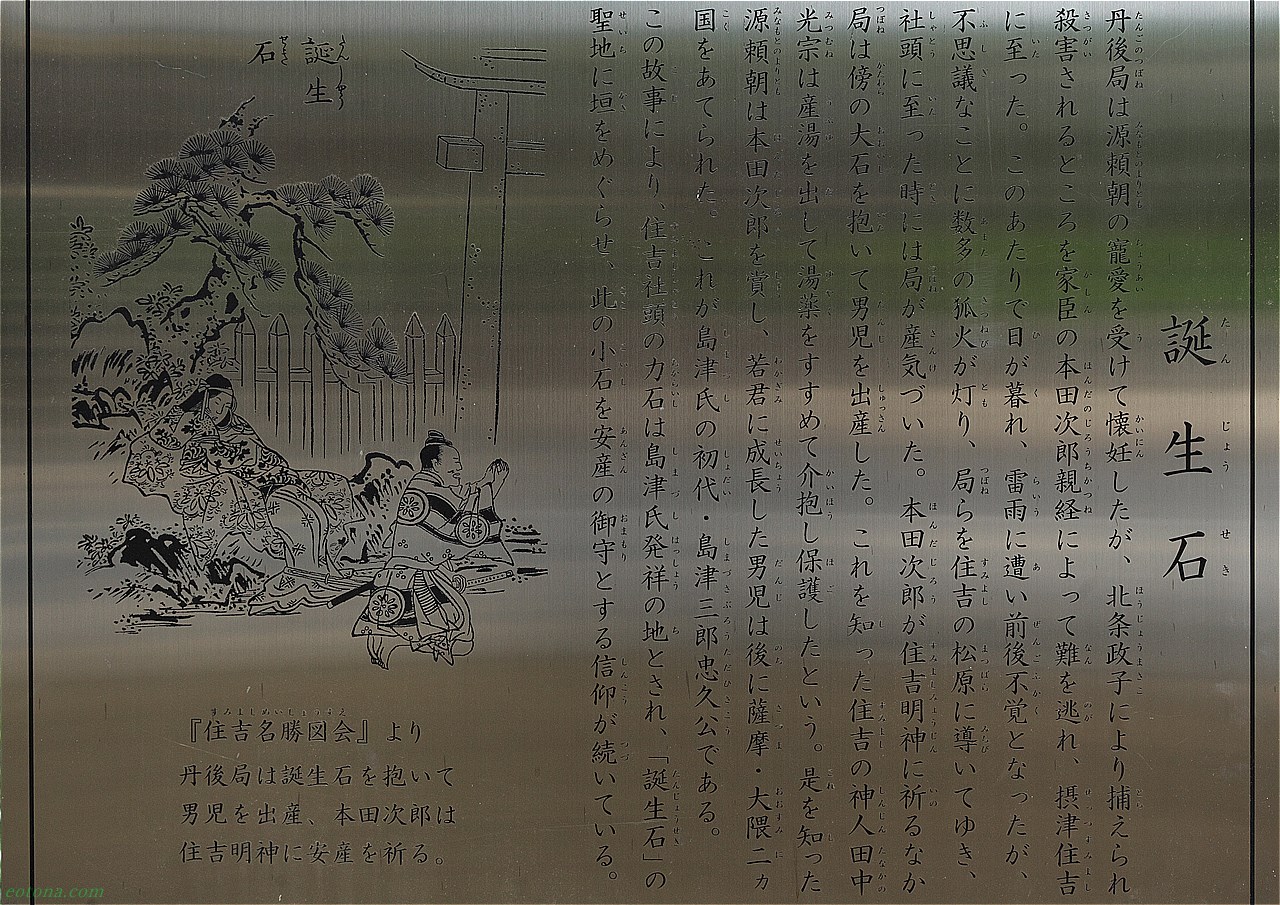 誕生石
丹後局は源頼朝の寵愛を受けて懐妊したが、北条政子により捕えられ
殺害されるところを家臣の本田次郎親経によって難を逃れ、摂津住吉
に至った。このあたりで日が暮れ、雷雨に遭い前後不覚となったが、
不思議なことに数多の狐火が灯り、局らを住吉の松原に導いてゆき、
社頭に至った時には局が産気づいた。本田次郎が住吉明神に祈るなか
局は傍の大石を抱いて男児を出産した。これを知った住吉の神人田中
光宗は産湯を出して湯薬をすすめて介抱し保護したという。是を知った
源頼朝は本田次郎を賞し、若君に成長した男児は後に薩摩・大隈二ヵ
国をあてられた。これが島津氏の初代・島津三郎忠久公である。
この故事により、住吉社頭の力石は島津氏発祥の地とされ、「誕生石」の
聖地に垣をめぐらせ、此の小石を安産の御守とする信仰が続いている。
誕生
石
『住吉名勝図会』より
丹後局は誕生石を抱いて
男児を出産、本田次郎は
住吉明神に安産を祈る。
eotona.com